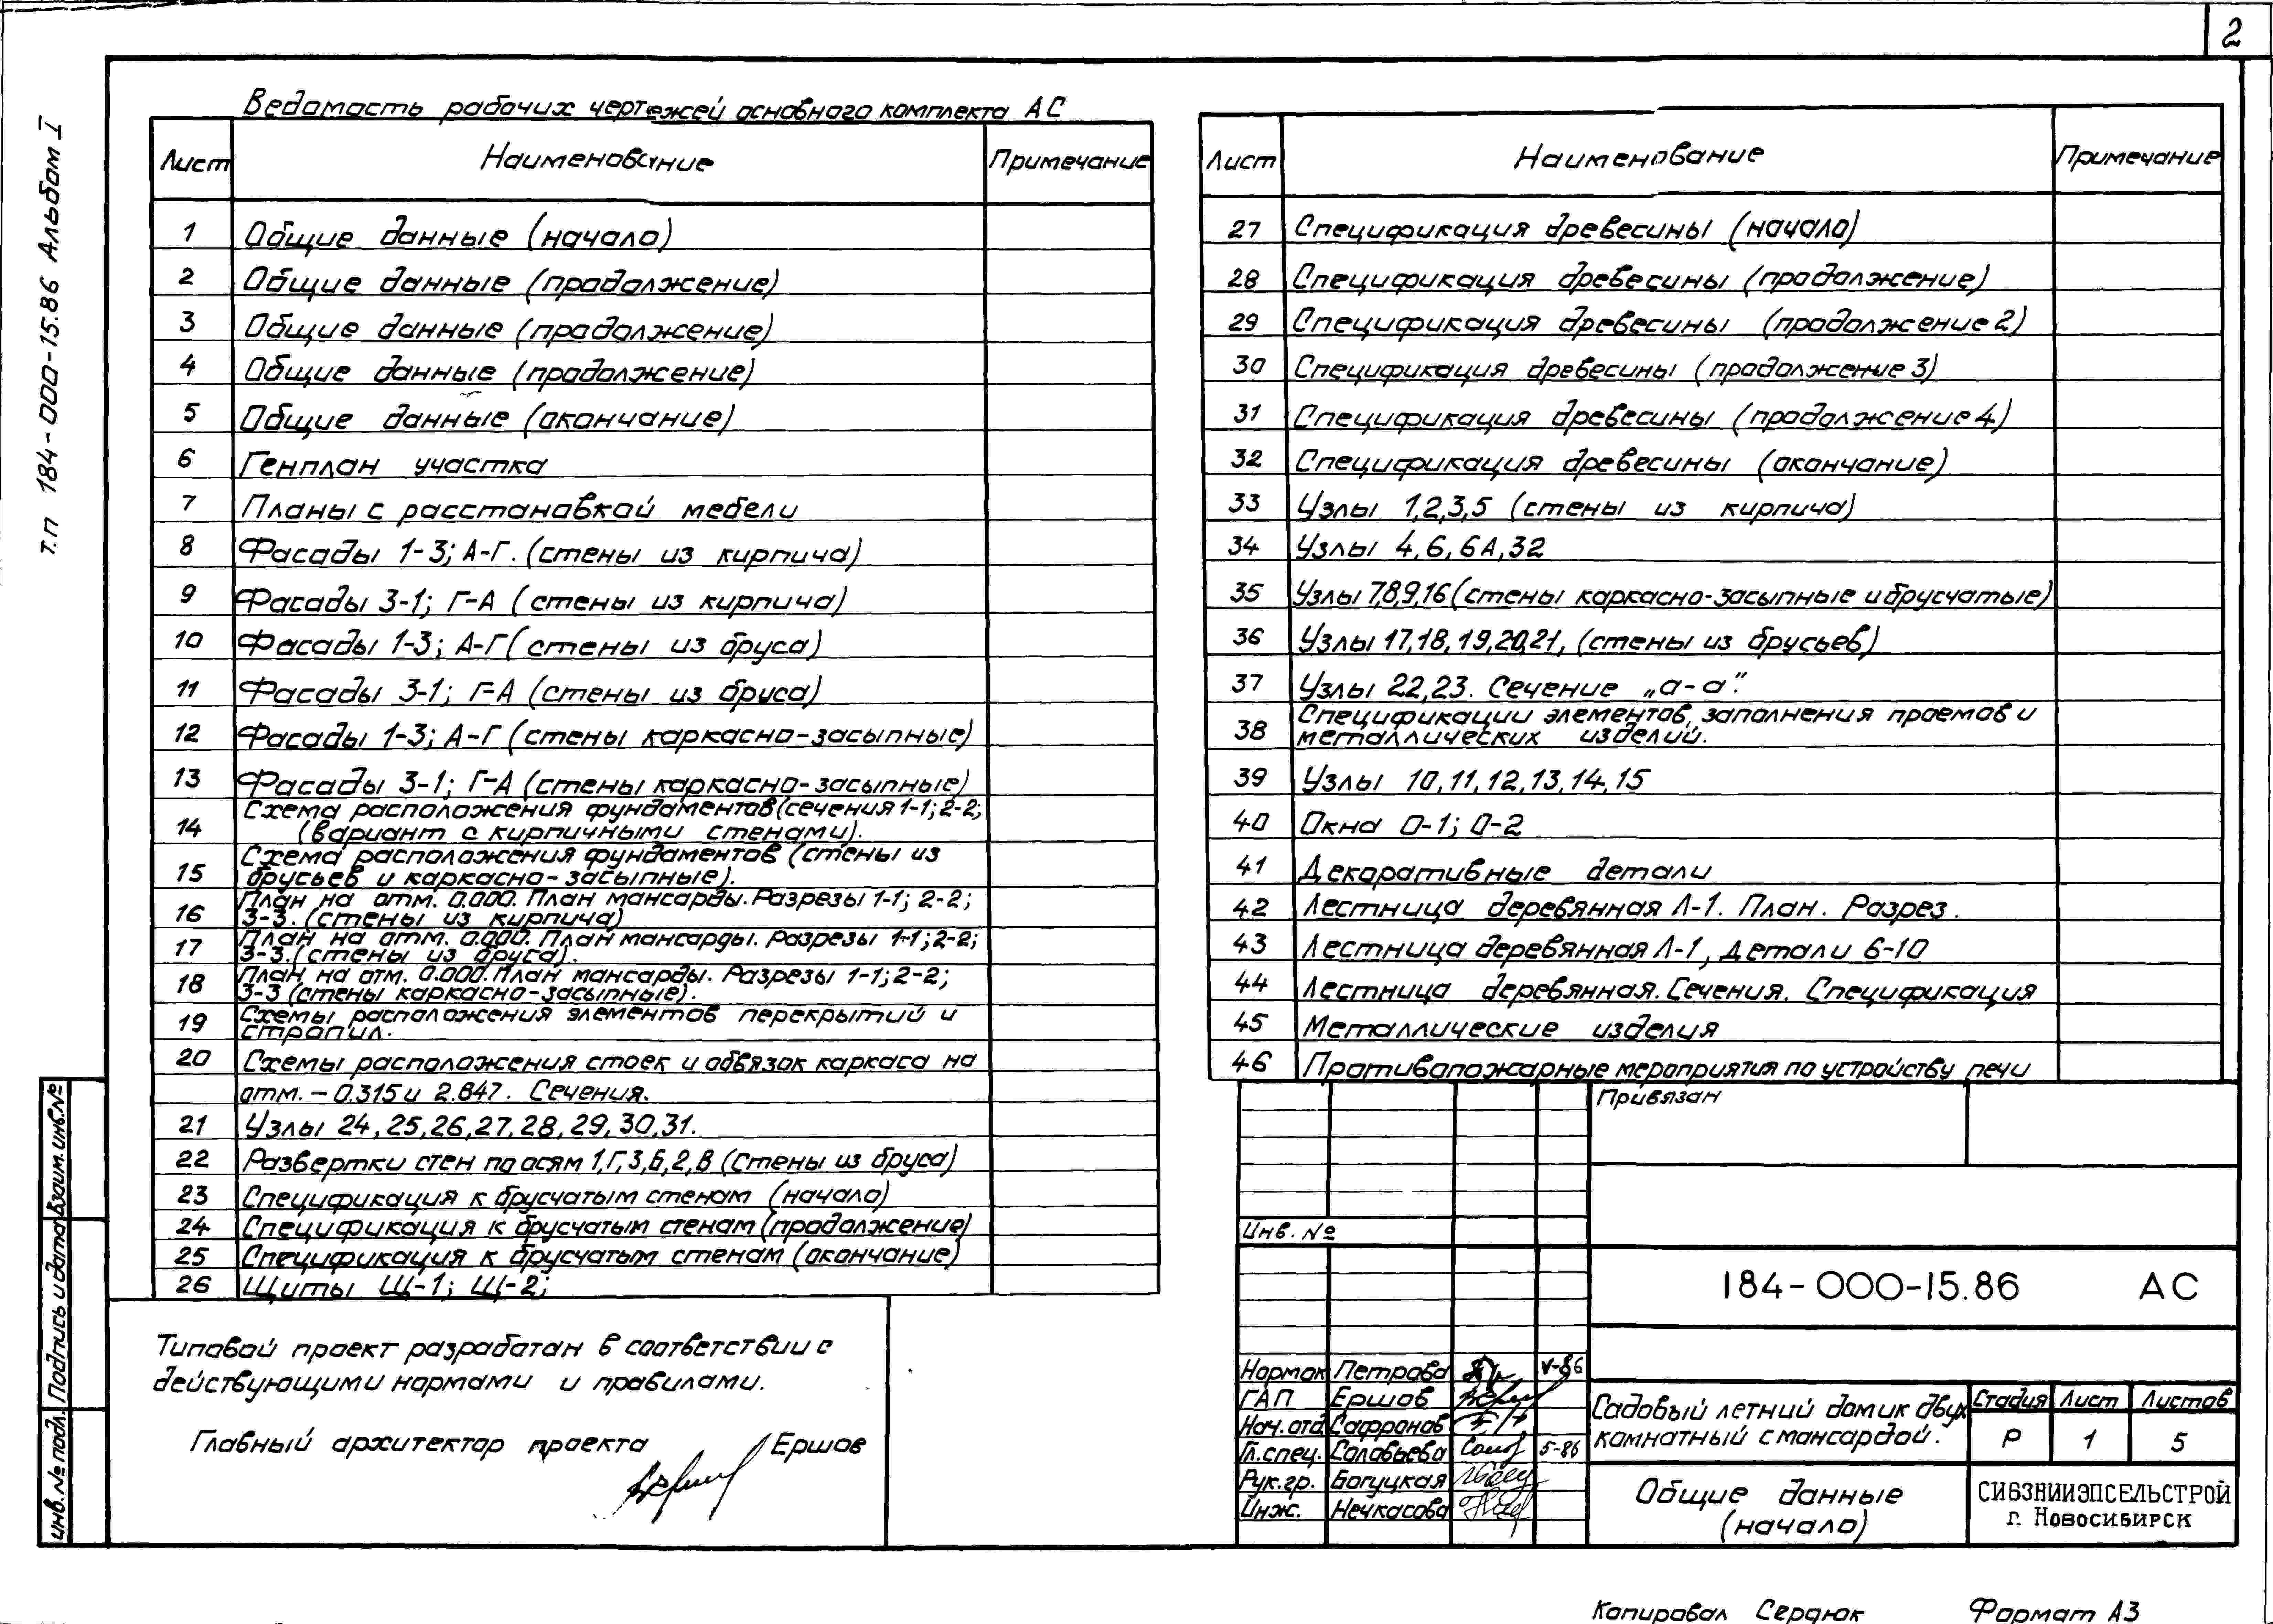 2
т.п 184-000-15.86 Альбом I
Ведомость рабочих чертежей основного комплекта АС
Лист Наименование Примечание
1 Общие данные (начало)
2 Общие данные (продолжение)
3 Общие данные (продолжение)
4 Общие данные (продолжение)
5 Общие данные (окончание)
6 Генплан участка
7 Планы с расстановкой мебели
8 Фасады 1-3; А-Г. (стены из кирпича)
9 Фасады 3-1; Г-А (стены из кирпича)
10 Фасады 1-3; А-Г (стены из бруса)
11 Фасады 3-1; Г-А (стены из бруса)
12 Фасады 1-3; А-Г (стены каркасно-засыпные)
13 Фасады 3-1; Г-А (стены каркасно-засыпные)
14 Схема расположения фундаментов (сечения 1-1; 2-2;
(вариант с кирпичными стенами).
15 Схема расположения фундаментов (стены из
брусьев и каркасно-засыпные).
16 План на отм. 0.000. План мансарды. Разрезы 1-1; 2-2;
3-3. (стены из кирпича)
17 План на отм. 0.000. План мансарды. Разрезы 1-1; 2-2;
3-3. (стены из бруса).
18 План на отм. 0.000. План мансарды. Разрезы 1-1; 2-2;
3-3 (стены каркасно-засыпные).
19 Схемы расположения элементов перекрытий и
стропил.
20 Схемы расположения стоек и обвязок каркаса на
отм. -0.315 и 2.847. Сечения.
21 Узлы 24, 25, 26, 27, 28, 29, 30, 31.
22 Развертки стен по осям 1, Г, 3, Б, 2, В (Стены из бруса)
23 Спецификация к брусчатым стенам (начало)
24 Спецификация к брусчатым стенам (продолжение)
25 Спецификация к брусчатым стенам (окончание)
26 Щиты Щ-1; Щ-2;
Лист Наименование Примечание
27 Спецификация древесины (начало)
28 Спецификация древесины (продолжение)
29 Спецификация древесины (продолжение 2)
30 Спецификация древесины (продолжение 3)
31 Спецификация древесины (продолжение 4)
32 Спецификация древесины (окончание)
33 Узлы 1,2,3,5 (стены из кирпича)
34 Узлы 4, 6, 6А, 32
35 Узлы 7,8,9,16 (стены каркасно-засыпные и брусчатые)
36 Узлы 17, 18, 19, 20, 21, (стены из брусьев)
37 Узлы 22, 23. Сечение „а-а".
38 Спецификации элементов, заполнения проемов и
металлических изделий.
39 Узлы 10, 11, 12, 13, 14, 15
40 Окна О-1; О-2
41 Декоративные детали
42 Лестница деревянная Л-1. План. Разрез.
43 Лестница деревянная Л-1, детали 6-10
44 Лестница деревянная. Сечения. Спецификация
45 Металлические изделия
46 Противопожарные мероприятия по устройству печи
Типовой проект разработан в соответствии с
действующими нормами и правилами.
Главный архитектор проекта Ершов
инв.№ подл. Подпись и дата Взаим.инв.№
Привязан
Инв. №
184-000-15.86 АС
Нормок Петрова V-86
ГАП Ершов
Нач.отд Сафронов
Гл.спец. Соловьева 5-86
Рук.гр. Богуцкая
Инж. Нечкасова
Садовый летний домик двух
комнатный с мансардой.
Стадия Лист Листов
Р 1 5
Общие данные
(начало)
СИБЗНИИЭПСЕЛЬСТРОЙ
г. Новосибирск
Копировал Сердюк Формат А3